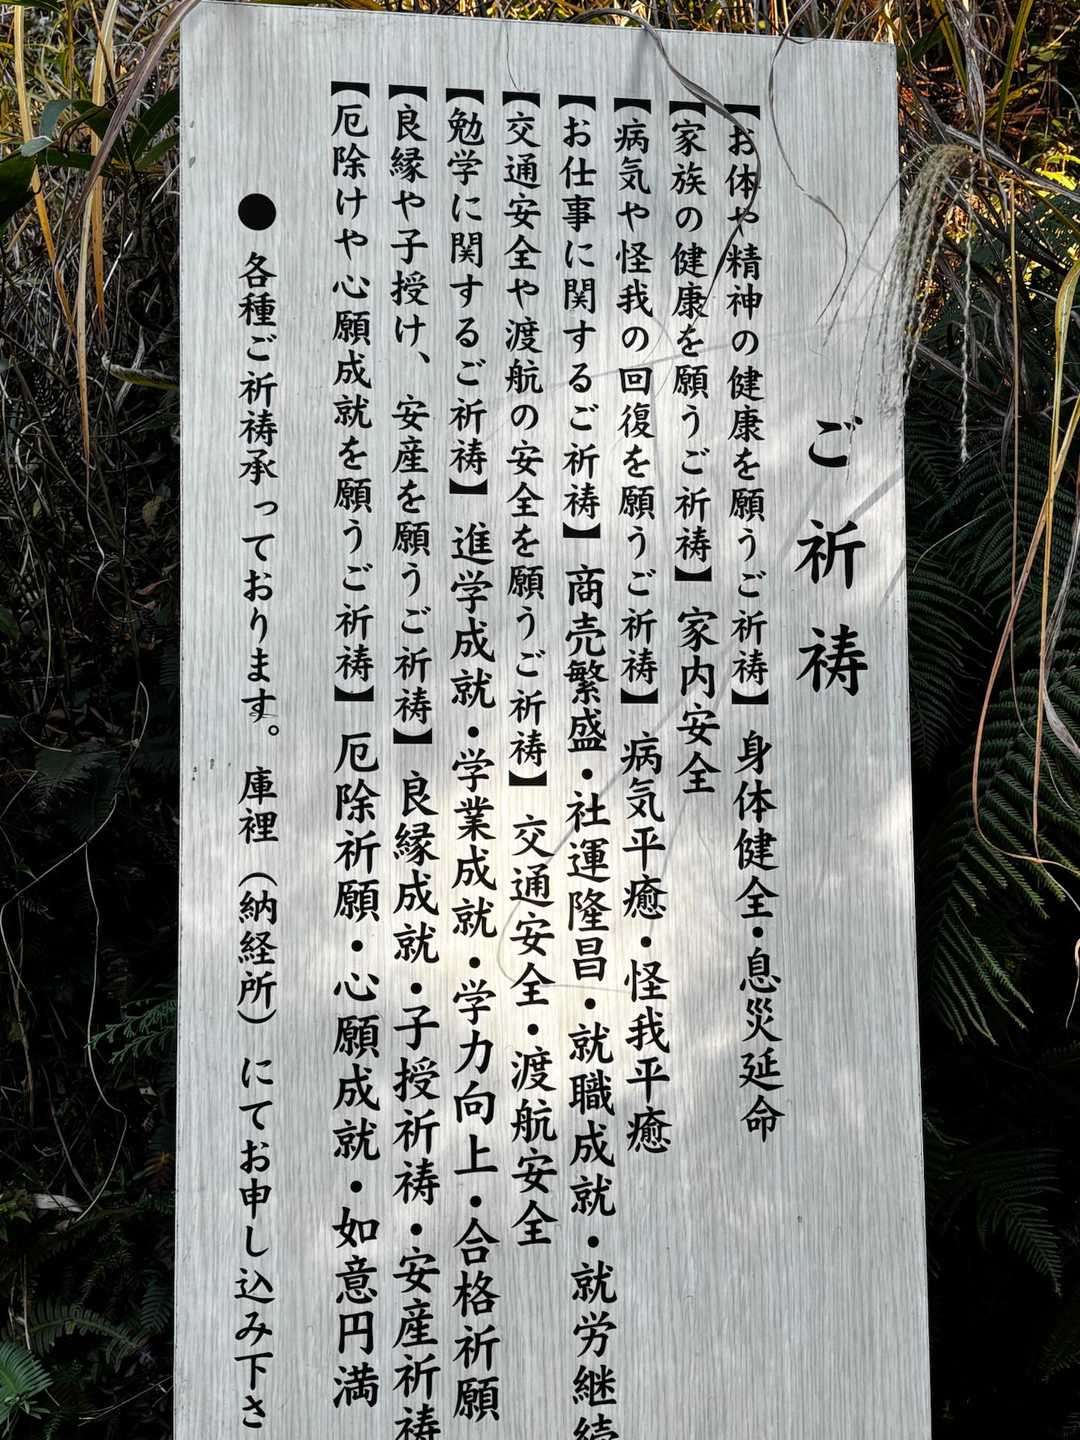 ご祈祷
【お体や精神の健康を願うご祈祷】 身体健全・息災延命
【家族の健康を願うご祈祷】 家内安全
【病気や怪我の回復を願うご祈祷】 病気平癒・怪我平癒
【お仕事に関するご祈祷】 商売繁盛・社運隆昌・就職成就・就労継続
【交通安全や渡航の安全を願うご祈祷】 交通安全・渡航安全
【勉学に関するご祈祷】 進学成就・学業成就・学力向上・合格祈願
【良縁や子授け、安産を願うご祈祷】 良縁成就・子授祈祷・安産祈祷
【厄除けや心願成就を願うご祈祷】 厄除祈願・心願成就・如意円満
● 各種ご祈祷承っております。庫裡（納経所）にてお申し込み下さ